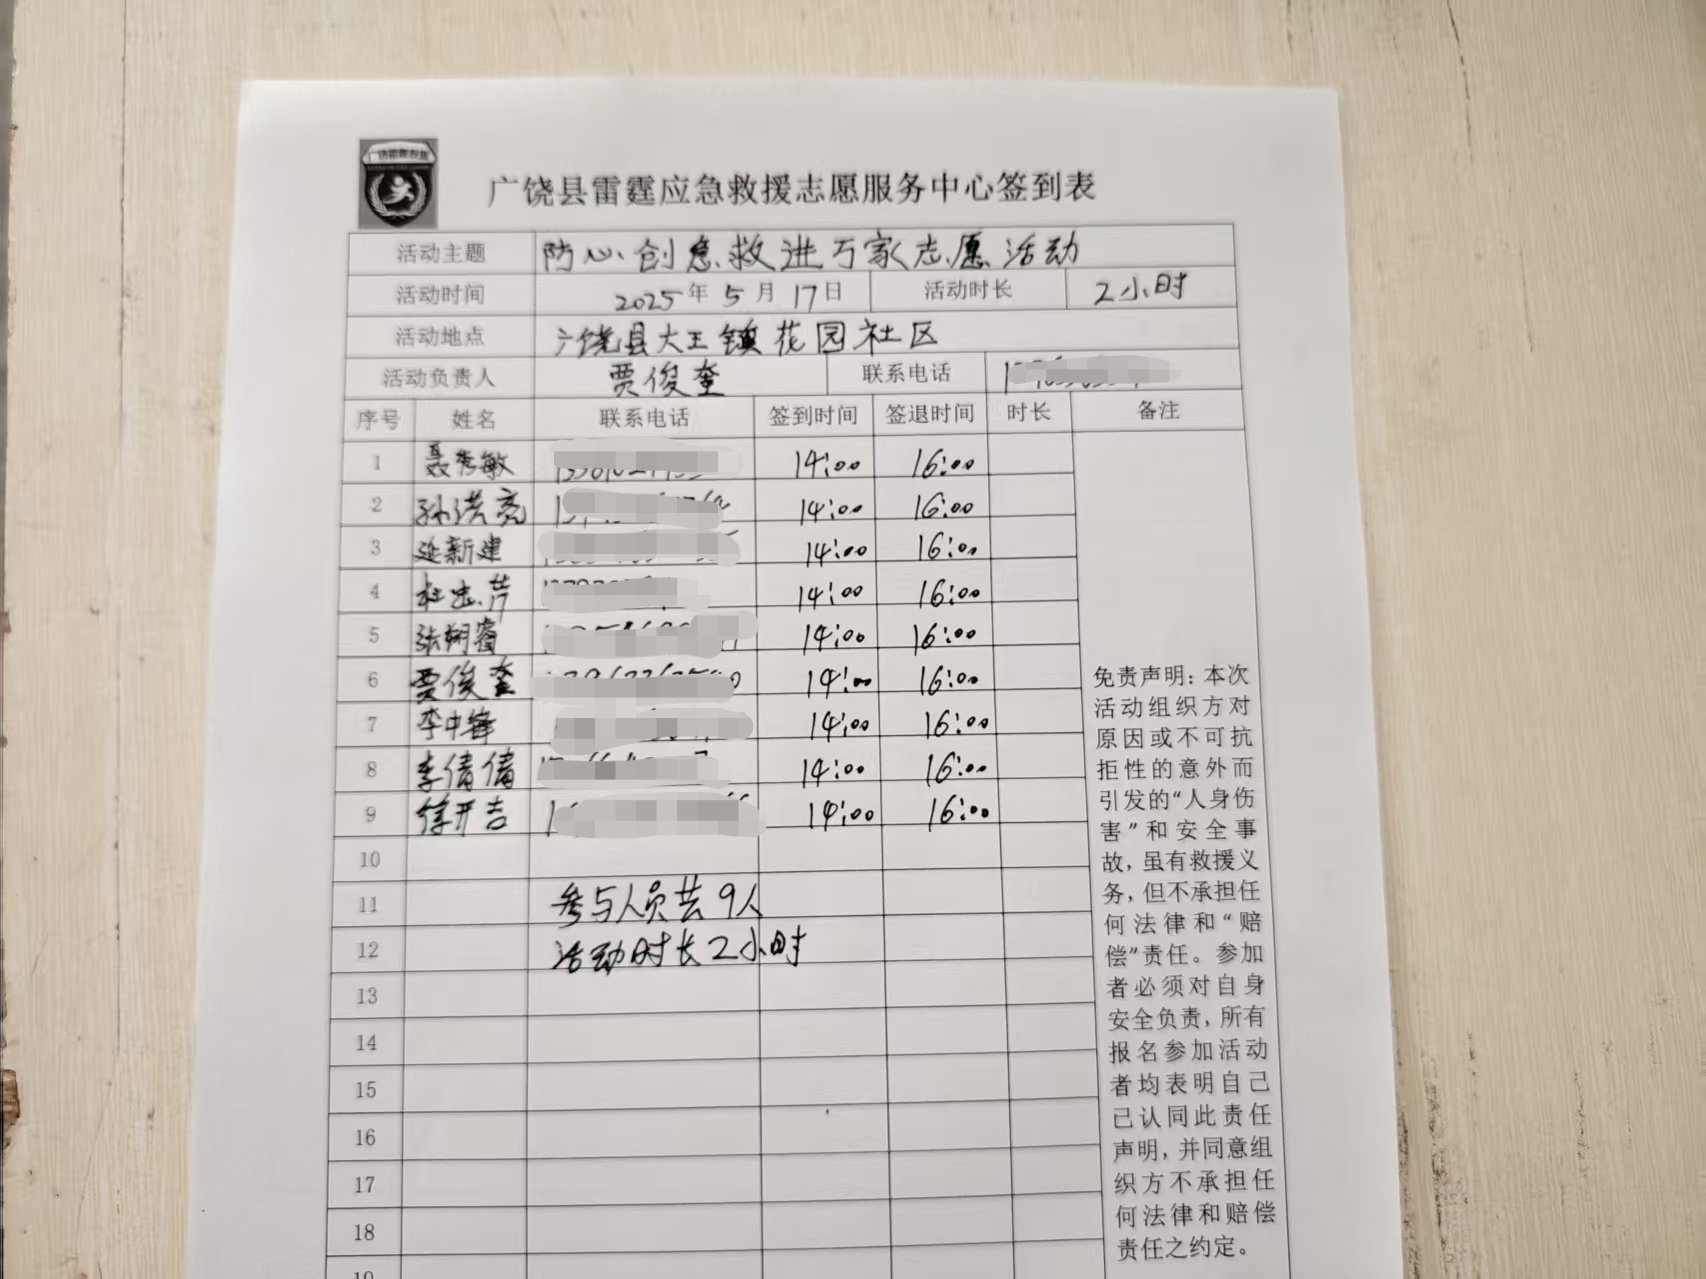 广饶县雷霆应急救援志愿服务中心签到表
活动主题 防心创急救进万家志愿活动
活动时间 2025年5月17日 活动时长 2小时
活动地点 广饶县大王镇花园社区
活动负责人 贾俊奎 联系电话
序号 姓名 联系电话 签到时间 签退时间 时长 备注
1 聂秀敏 14:00 16:00
2 孙洪亮 14:00 16:00
3 延新建 14:00 16:00
4 14:00 16:00
5 张朔睿 14:00 16:00
6 贾俊奎 14:00 16:00
7 李中锋 14:00 16:00
8 李倩倩 14:00 16:00
9 徐开吉 14:00 16:00
10
11 参与人员共9人
12 活动时长2小时
13
14
15
16
17
18
19
免责声明：本次
活动组织方对
原因或不可抗
拒性的意外而
引发的“人身伤
害”和安全事
故，虽有救援义
务，但不承担任
何法律和“赔
偿”责任。参加
者必须对自身
安全负责，所有
报名参加活动
者均表明自己
已认同此责任
声明，并同意组
织方不承担任
何法律和赔偿
责任之约定。